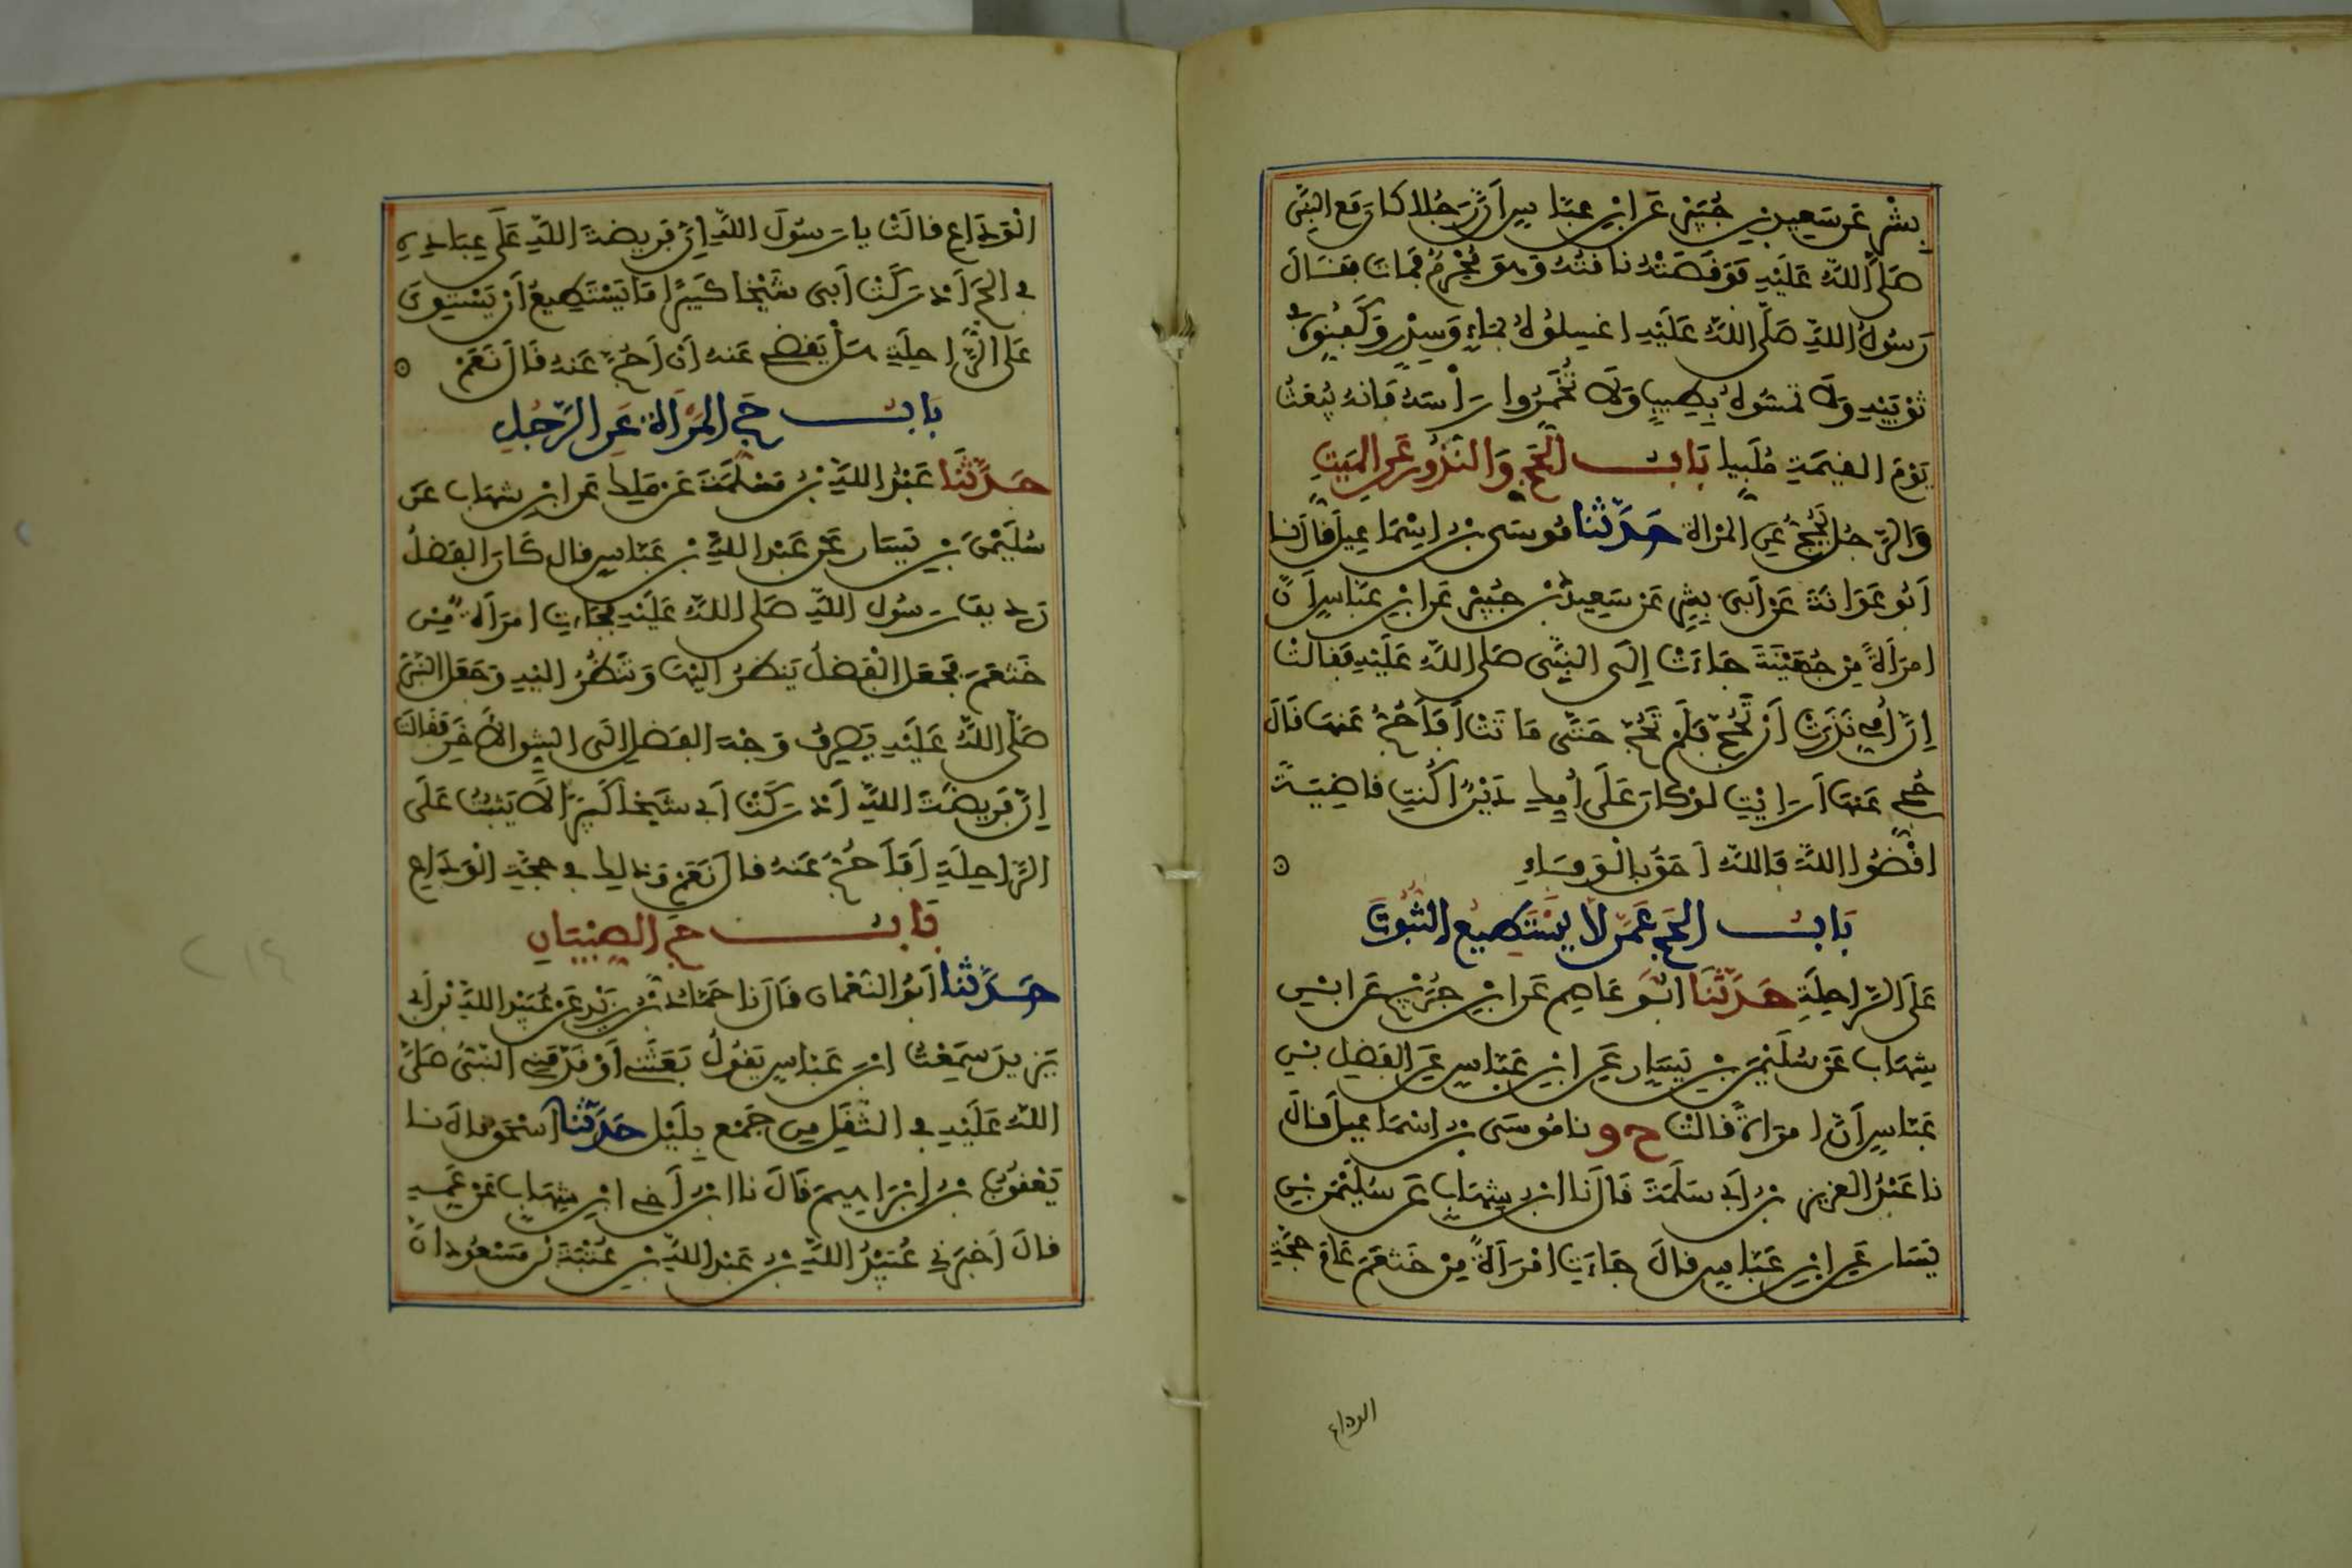 بِشْرٍ عَن سَعِيدِ بْنِ جُبَيْرٍ عَنِ ابْنِ عَبَّاسٍ أَنَّ رَجُلا كَانَ مَعَ النَّبِيِّ
صَلَّى اللَّهُ عَلَيْهِ فَوَقَصَتْهُ نَاقَتُهُ وَهُوَ مُحْرِمٌ فَمَاتَ فَقَالَ
رَسُولُ اللَّهِ صَلَّى اللَّهُ عَلَيْهِ اغسِلُوهُ بِمَاءٍ وَسِدْرٍ وَكَفِّنُوهُ فِي
ثَوْبَيْهِ وَلَا تَمَسُّوهُ بِطِيبٍ وَلَا تُخَمِّرُوا رَأْسَهُ فَإنهُ يُبْعَثُ
يَوْمَ القِيَمَةِ مُلَبِّيا بَابُ الْحَجِّ وَالنُّذُورِ عَنِ المَيِّتِ
وَالرَّجُلُ يَحُجُّ عَنِ المَرْأَةِ حَدَّثَنَا مُوسَى بْنُ إِسْمَاعِيلَ قَالَ نَا
أَبُو عَوَانَةَ عَنْ أَبِي بِشْرٍ عَنْ سَعِيدِ بْنِ جُبَيْرٍ عَنِ ابْنِ عَبَّاسٍ أَنَّ
امرَأَةً مِنْ جُهَيْنَةَ جَاءَتْ إِلَى النَّبِيِّ صَلَّى اللَّهُ عَلَيْهِ فَقَالَتْ
إِنَّ أُمِّي نَذَرَتْ أَنْ تَحُجَّ فَلَمْ تَحُجَّ حَتَّى مَاتَتْ أَفَأَحُجُّ عَنهَا قَالَ
حُجِّي عَنهَا أَرَأَيْتِ لَوْ كَانَ عَلَى أُمِّكِ دَيْنٌ أَكُنتِ قَاضِيَةً
اقْضُوا اللَّهَ فَاللَّهُ أَحَقُّ بِالْوَفَاءِ
بَابُ الحَجِّ عَمَّن لَا يَسْتَطِيعُ الثُّبُوتَ
عَلَى الرَّاحِلَةِ حَدَّثَنَا أَبُو عَاصِمٍ عَنِ ابْنِ جُرَيْجٍ عَنِ ابْنِ
شِهَابٍ عَنْ سُلَيْمَنَ بْنِ يَسَارٍ عَنِ ابْنِ عَبَّاسٍ عَنِ الفَضْلِ بْنِ
عَبَّاسٍ أَنَّ امرَأَةً قَالَتْ ح و نَا مُوسَى بْنُ إِسْمَاعِيلَ قَالَ
نَا عَبْدُ العَزِيزِ بْنُ أَبِي سَلَمَةَ قَالَ نَا ابْنُ شِهَابٍ عَن سُلَيْمَنَ بْنِ
يَسَارٍ عَنِ ابْنِ عَبَّاسٍ قَالَ جَاءَتِ امْرَأَةٌ مِنْ خَثعَمَ عَامَ حَجَّةِ
الوداع
الْوَدَاعِ قَالَتْ يَا رَسُولَ اللَّهِ إِنَّ فَرِيضَةَ اللَّهِ عَلَى عِبَادِهِ
فِي الحَجِّ أَدْرَكَتْ أَبِي شَيْخًا كَبِيرًا مَا يَسْتَطِيعُ أَنْ يَسْتَوِيَ
عَلَى الرَّاحِلَةِ هَلْ يَقْضِي عَنهُ أَنْ أَحُجَّ عَنهُ قَالَ نَعَمْ
بَابُ حَجِّ المَرْأَةِ عَنِ الرَّجُلِ
حَدَّثَنَا عَبْدُ اللَّهِ بْنُ مَسْلَمَةَ عَنْ مَلِكٍ عَنِ ابْنِ شِهَابٍ عَن
سُلَيْمَنَ بْنِ يَسَارٍ عَنْ عَبْدِ اللَّهِ بْنِ عَبَّاسٍ قَالَ كَانَ الفَضْلُ
رَدِيفَ رَسُولِ اللَّهِ صَلَّى اللَّهُ عَلَيْهِ فَجَاءَتِ امرَأَةٌ مِنْ
خَثْعَمَ فَجَعَلَ الْفَضْلُ يَنظُرُ إِلَيْهَا وَتَنظُرُ إِلَيْهِ وَجَعَلَ النَّبِيُّ
صَلَّى اللَّهُ عَلَيْهِ يَصْرِفُ وَجْهَ الفَضْلِ إِلَى الشِّقِّ الْآخَرِ فَقَالَتْ
إِنَّ فَرِيضَةَ اللَّهِ أَدْرَكَتْ أَبِي شَيْخًا كَبِيرًا لَا يَثْبُتُ عَلَى
الرَّاحِلَةِ أَفَأَحُجُّ عَنهُ قَالَ نَعَمْ وَذَلِكَ فِي حَجَّةِ الْوَدَاعِ
بَابُ حَجِّ الصِّبْيَانِ
حَدَّثَنَا أَبُو النُّعْمَانِ قَالَ نَا حَمَّادُ بْنُ زَيْدٍ عَنْ عُبَيْدِ اللَّهِ بْنِ أَبِي
يَزِيدَ سَمِعْتُ ابْنَ عَبَّاسٍ يَقُولُ بَعَثَنِي أَوْ قَدَّمَنِي النَّبِيُّ صَلَّى
اللَّهُ عَلَيْهِ فِي الثَّقَلِ مِن جَمْعٍ بِلَيْلٍ حَدَّثَنَا إِسْحَقُ قَالَ نَا
يَعْقُوبُ بْنُ إِبْرَاهِيمَ قَالَ نَا ابْنُ أَخِي ابْنِ شِهَابٍ عَنْ عَمِّهِ
قَالَ أَخْبَرَنِي عُبَيْدُ اللَّهِ بْنُ عَبْدِ اللَّهِ بْنِ عُتْبَةَ بْنِ مَسْعُودٍ أَنَّ
٢١٤